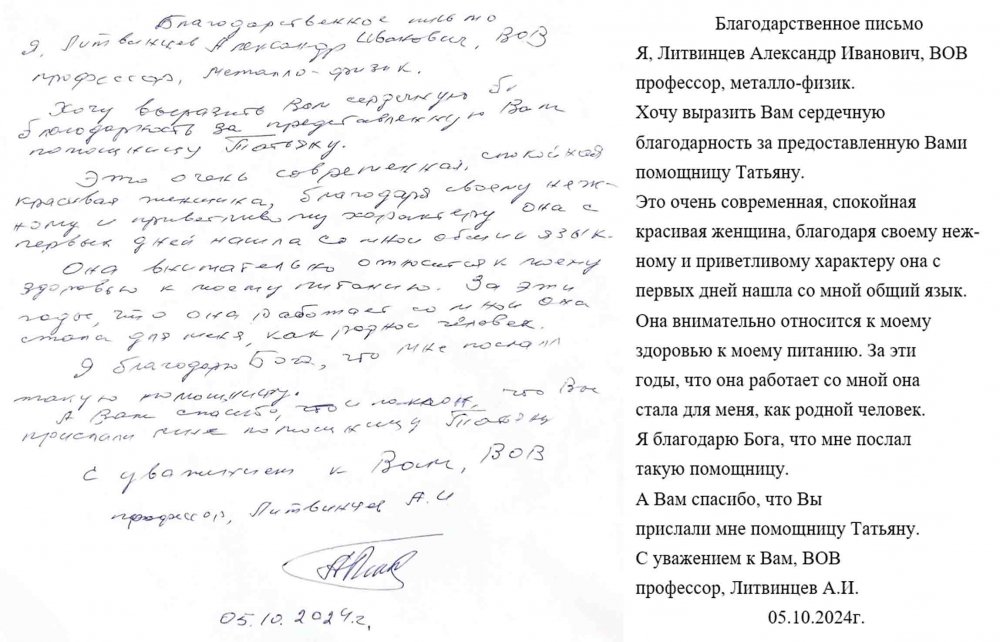 Благодарственное письмо
Я, Литвинцев Александр Иванович, ВОВ
профессор, металло-физик.
Хочу выразить Вам сердечную
благодарность за представленную Вам
помощницу Татьяну.
Это очень современная, спокойная
красивая женщина, благодаря своему неж-
ному и приветливому характеру она с
первых дней нашла со мной общий язык.
Она внимательно относится к моему
здоровью к моему питанию. За эти
годы, что она работает со мной она
стала для меня, как родной человек.
Я благодарю Бога, что мне послал
такую помощницу.
А Вам спасибо, что Вы
прислали мне помощницу Татьяну
С уважением к Вам, ВОВ
профессор, Литвинцев А.И
05.10.2024г.
Благодарственное письмо
Я, Литвинцев Александр Иванович, ВОВ
профессор, металло-физик.
Хочу выразить Вам сердечную
благодарность за предоставленную Вами
помощницу Татьяну.
Это очень современная, спокойная
красивая женщина, благодаря своему неж-
ному и приветливому характеру она с
первых дней нашла со мной общий язык.
Она внимательно относится к моему
здоровью к моему питанию. За эти
годы, что она работает со мной она
стала для меня, как родной человек.
Я благодарю Бога, что мне послал
такую помощницу.
А Вам спасибо, что Вы
прислали мне помощницу Татьяну.
С уважением к Вам, ВОВ
профессор, Литвинцев А.И.
05.10.2024г.